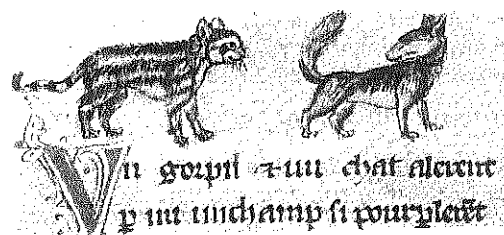 Vn gorpil ⁊ un chat aleient
ꝑ mi un champ si pourꝑleiẽt